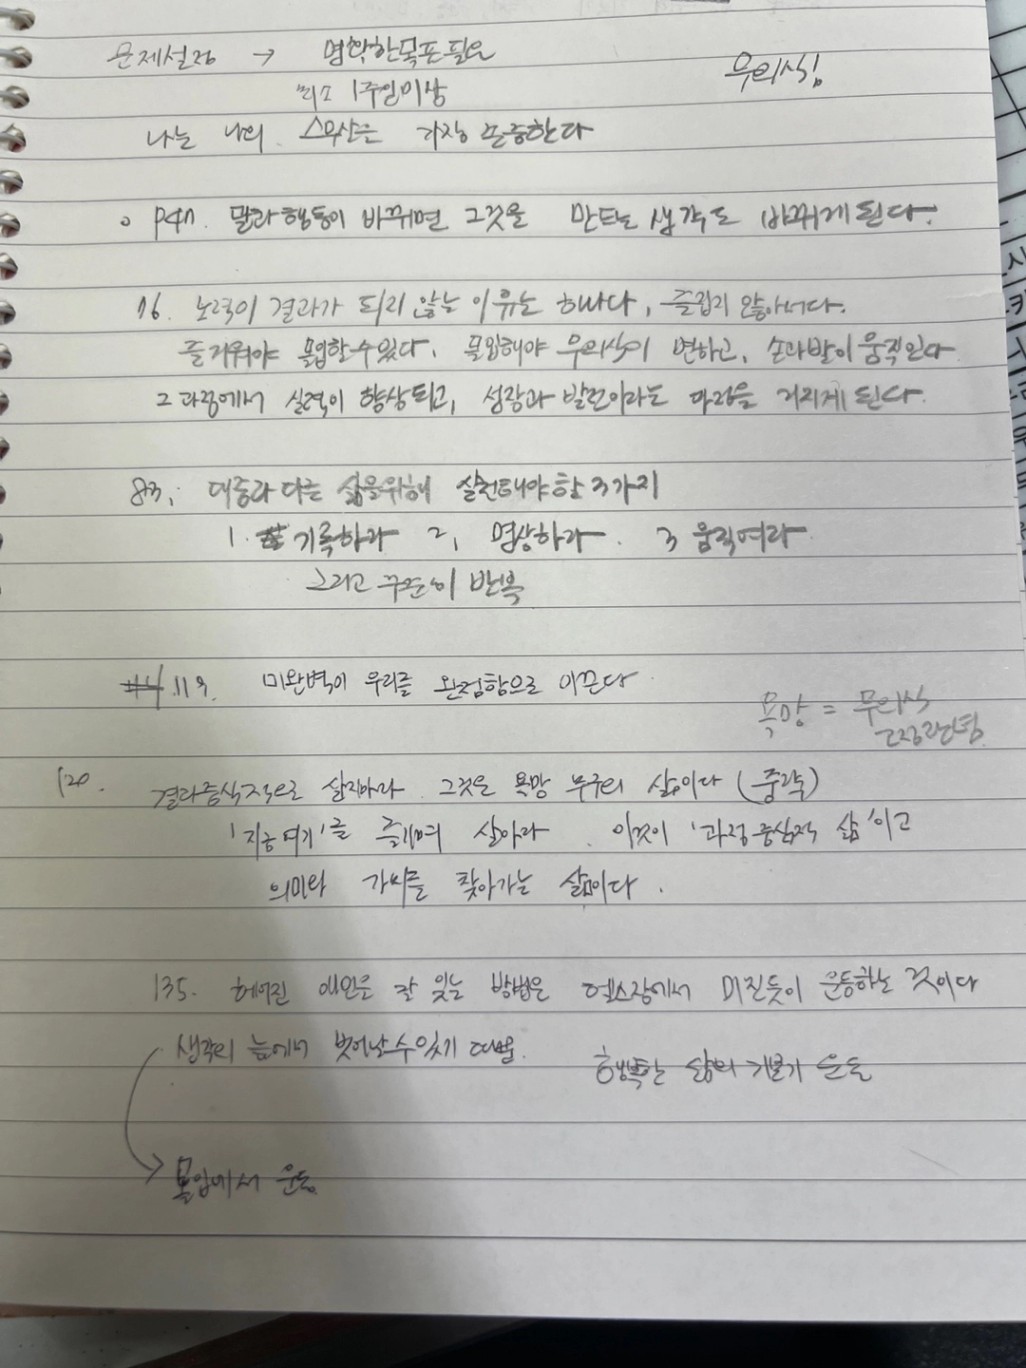 문제설정 → 명확한목표필요
무의식
최소 1주일이상
나는 나의 스무살은 가장 존중한다
p47. 말과행동이 바뀌면 그것을 만드는 생각도 바뀌게 된다.
76. 노력이 결과가 되지 않는 이유는 하나다, 즐겁지 않아서다.
즐거워야 몰입할수있다. 몰입해야 무의식이 변하고, 손과발이 움직인다
그 과정에서 실력이 향상되고, 성장과 발전이라는 과정을 거치게 된다.
83. 대중과 다른 삶을위해 실천해야할 3가지
1. 기록하라 2. 명상하라. 3 움직여라
그리고 꾸준히 반복
119. 미완벽이 우리를 완전함으로 이끈다
욕망 = 무의식
고정관념
120. 결과중심적으로 살지마라. 그것은 욕망 추구의 삶이다 (중략)
'지금여기'를 즐기며 살아라. 이것이 '과정중심적 삶'이고
의미와 가치를 찾아가는 삶이다.
135. 헤어진 애인을 잘 잊는 방법은 헬스장에서 미친듯이 운동하는 것이다
생각의 늪에서 벗어날수있기 때문. 행복한 삶의 기본기 운동
→ 몰입에서 운동